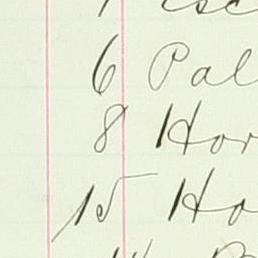 6 Pal
8 Hor
15 Ho